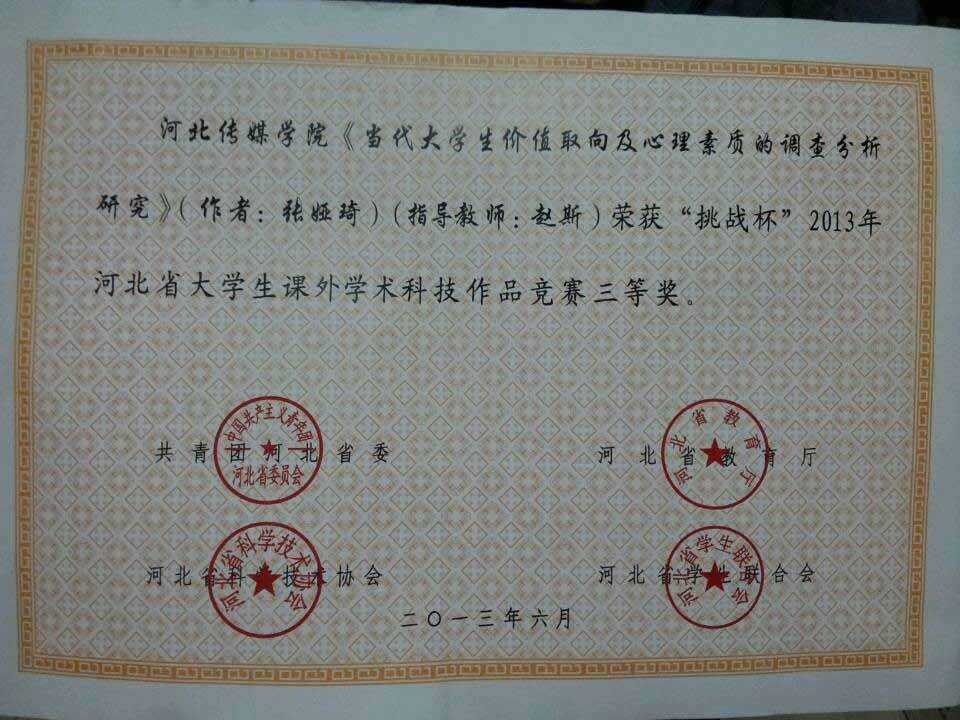 河北传媒学院《当代大学生价值取向及心理素质的调查分析
研究》(作者：张娅琦)(指导教师：赵斯)荣获“挑战杯”2013年
河北省大学生课外学术科技作品竞赛三等奖。
中国共产主义青年团
河北省委员会
共青团河北省委
河北省教育厅
河北省教育厅
河北省科学技术协会
河北省科学技术协会
河北省学生联合会
河北省学生联合会
二〇一三年六月